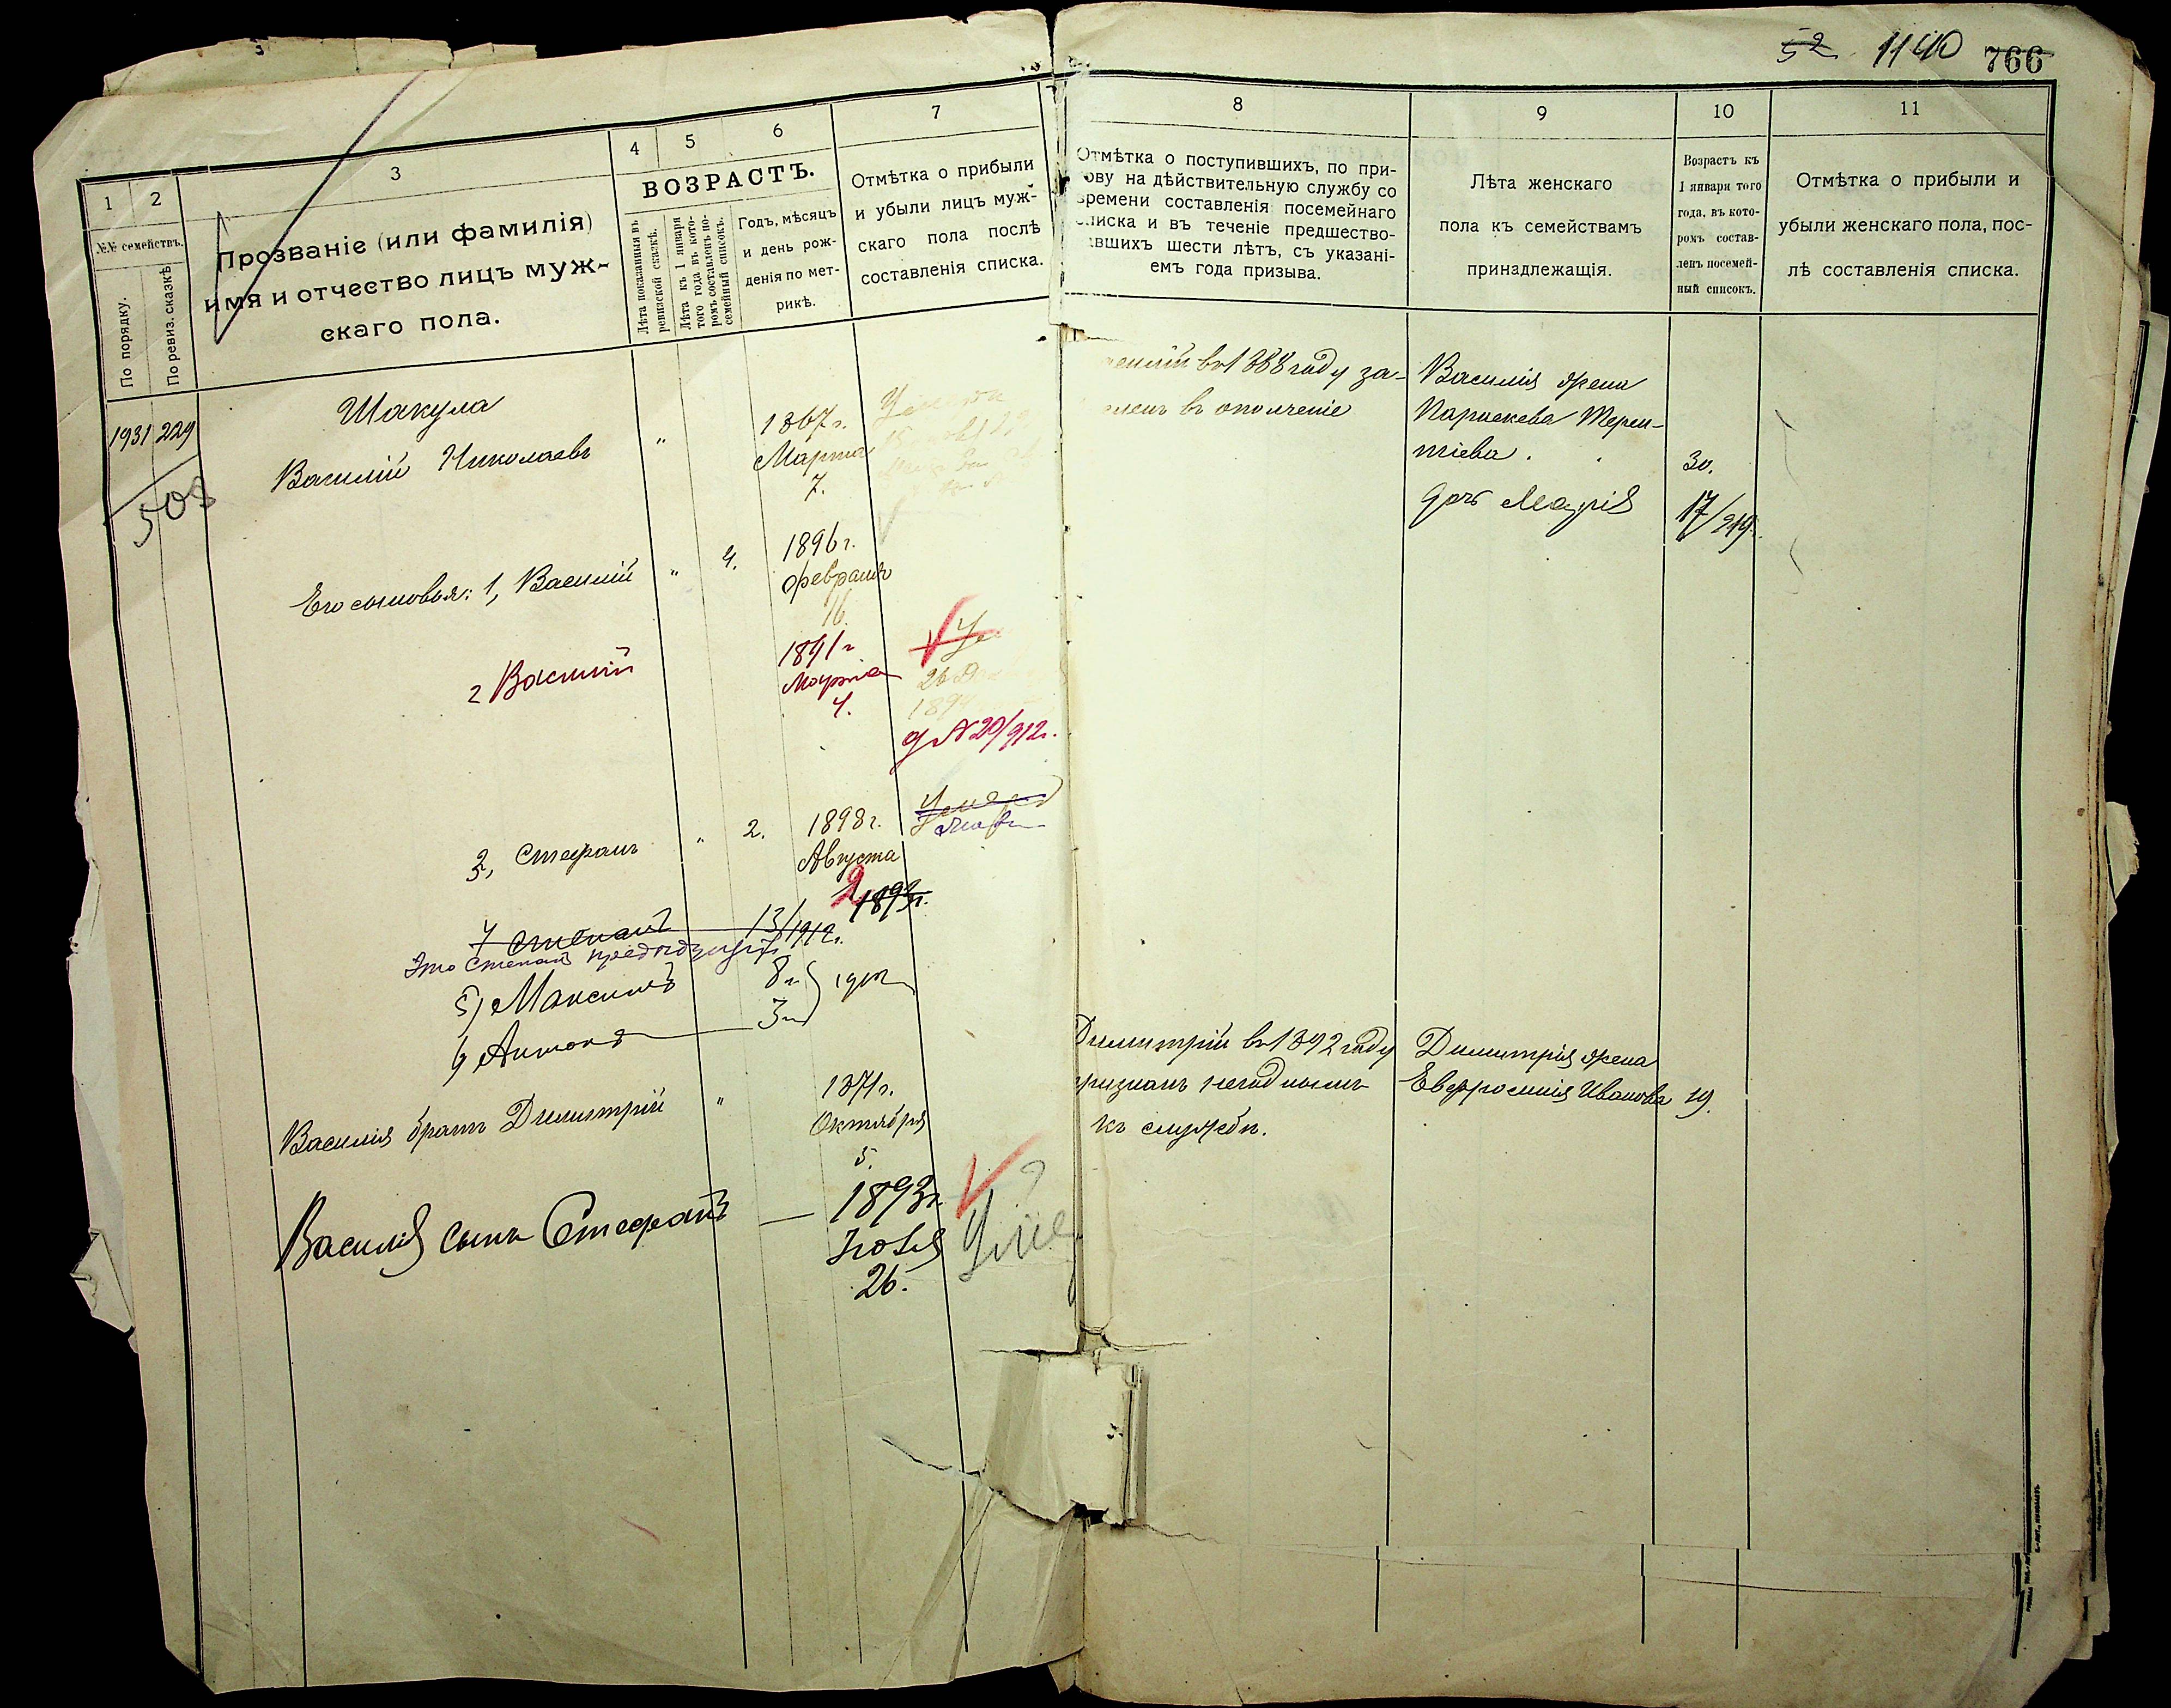 52 1140 766
1
2
3
4
5
6
7
8
9
10
11
№№ семействъ.
По порядку.
По ревиз. сказкѣ
Прозваніе (или фамилія)
имя и отчество лицъ муж-
скаго пола.
ВОЗРАСТЪ.
Лѣта показанныя въ
ревизской сказкѣ.
Лѣта къ 1 января
того года въ кото-
ромъ составленъ по-
семейный списокъ.
Годъ, мѣсяцъ
и день рож-
денія по мет-
рикѣ.
Отмѣтка о прибыли
и убыли лицъ муж-
скаго пола послѣ
составленія списка.
Отмѣтка о поступившихъ, по при-
ову на дѣйствительную службу со
времени составленія посемейнаго
списка и въ теченіе предшество-
авшихъ шести лѣтъ, съ указані-
емъ года призыва.
Лѣта женскаго
пола къ семействамъ
принадлежащія.
Возрастъ къ
1 января того
года, въ кото-
ромъ состав-
ленъ посемей-
ный списокъ.
Отмѣтка о прибыли и
убыли женскаго пола, пос-
лѣ составленія списка.
1931 229
508
Шакула
Василій Николаевъ " 1867 г.
Марта
7.
въ 1888 году за-
въ ополченіе
Василія жена
Параскева Терен-
тіева. 30.
дочь Марія 17/919.
Его сыновья: 1, Василій " 4. 1896 г.
Февраля
16.
2 Василій 1891 г
Марта
4.
26
189
д N 20/912 г.
3, Стефанъ " 2. 1898 г.
Августа
2
4 Степанъ 13/1912 г. 1893 г.
Это Степанъ предыдущій
5) Максимъ 8 л
6 Антонъ 3
Василія братъ Димитрій " 1871 г.
Октября
5.
Димитрій въ 1892 году
признанъ негоднымъ
къ службѣ.
Димитрія жена
Евфросинія Иванова 19.
Василія сынъ Стефанъ — 1893 г.
26.